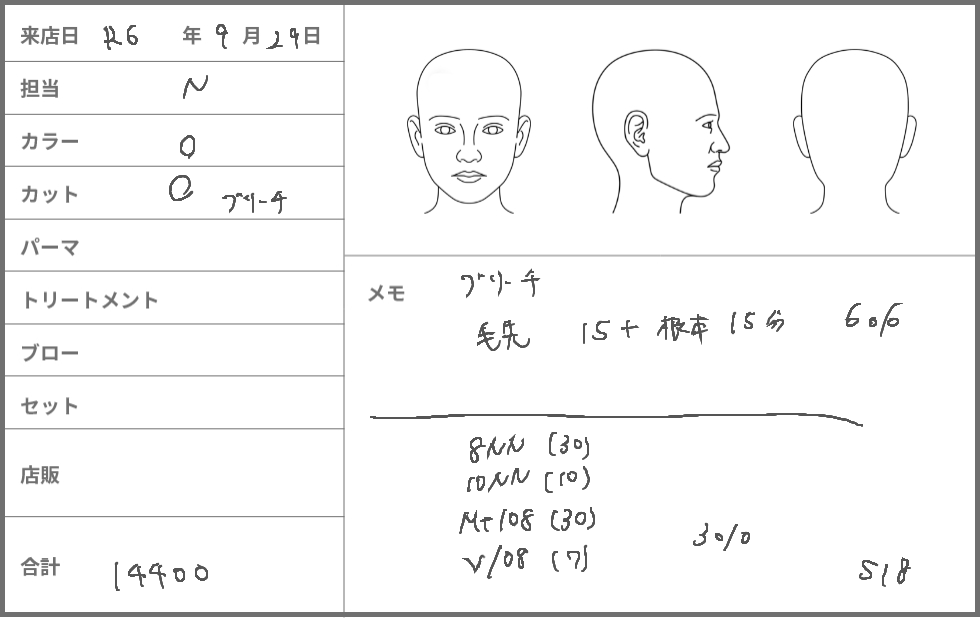 来店日 R6 年 9 月 29 日
担当 N
カラー ○
カット ○ ブリーチ
パーマ
トリートメント
ブロー
セット
店販
合計 14400
メモ
ブリーチ
毛先 15 + 根本 15分 6%
8NN (30)
10NN (10)
Mt/08 (30)
V/08 (7)
3%
518